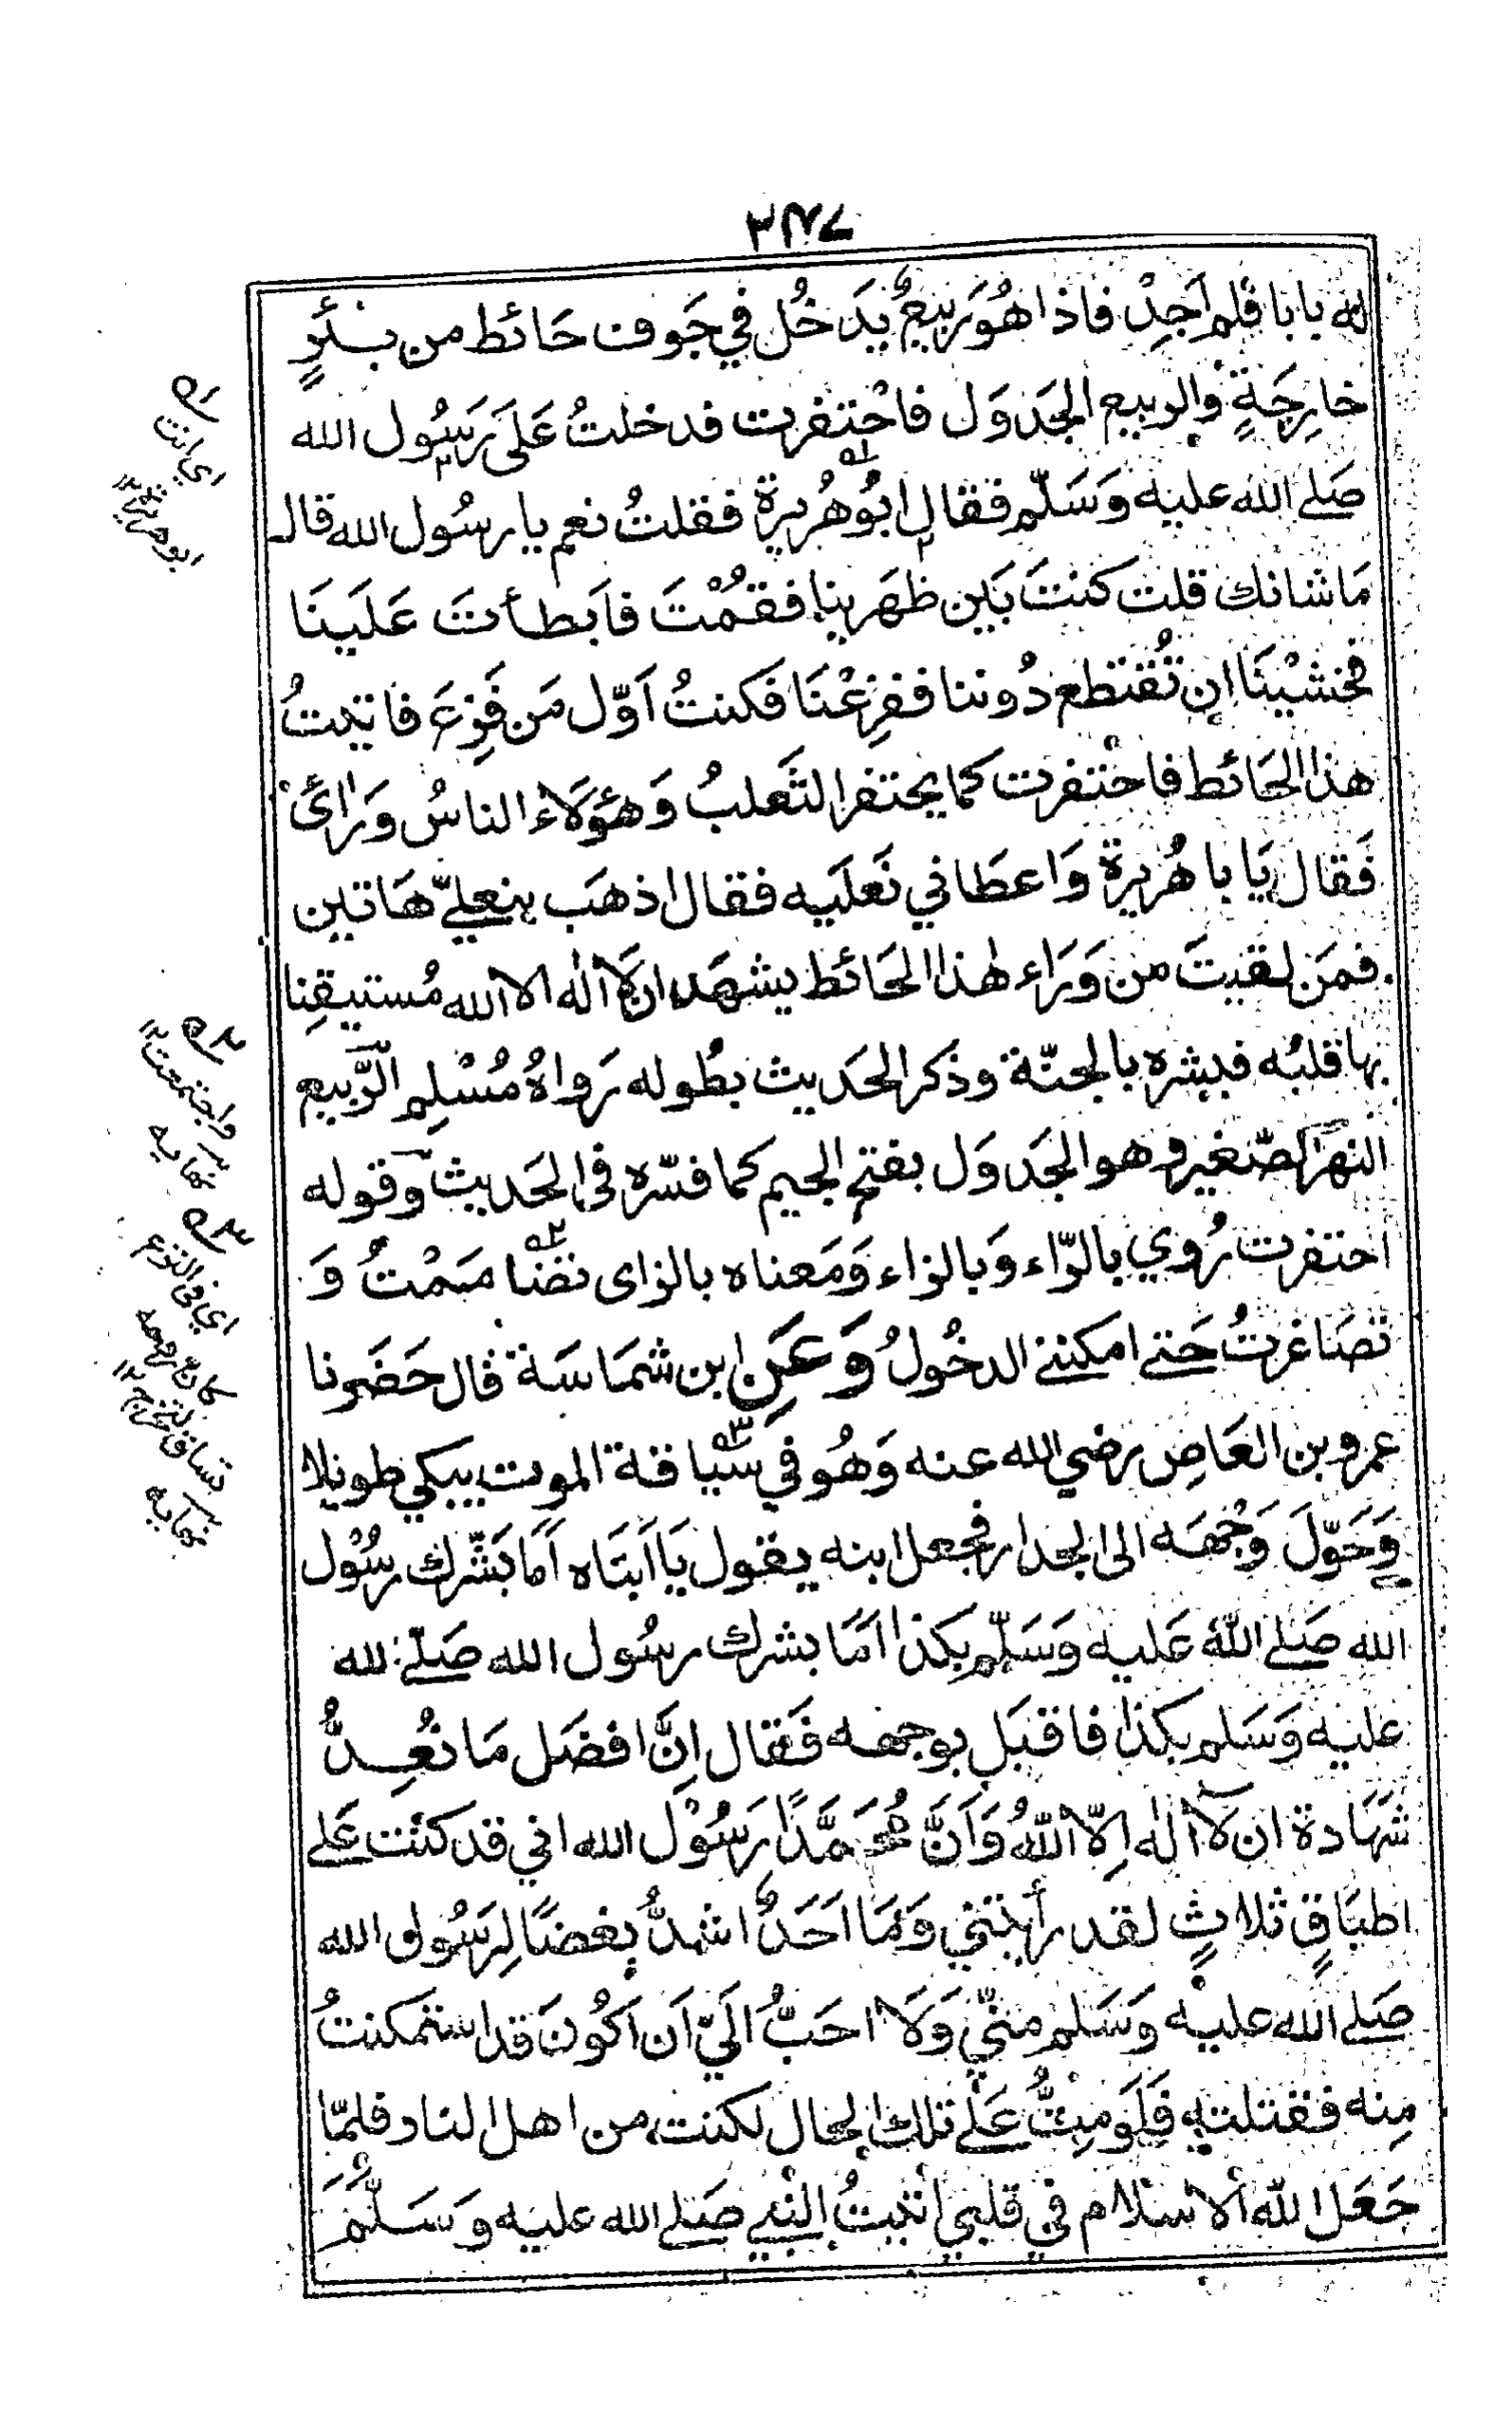 له بابا فلم اَجِدْ فاذا هُوَ رَبِيعٌ يَدخُل في جَوف حَائط من بِئرٍ
خارِجَةٍ والربيع الجَدوَل فاحْتفرت فدخلتُ عَلَى رَسُول الله
صَلے الله عليه وَسَلّم فقال اَبُوهُريرة فقلتُ نعم يا رسُول الله قال
مَاشانك قلت كنتَ بَين ظهَرينا فقُمْتَ فابَطأتَ عَلَينَا
فخشيْنَا ان تُقتطع دُوننا ففزِعْنَا فكنتُ اَوّل مَن فَزِعَ فاتيتُ
هذا الحَائط فاحْتفرت كما يحتفر الثَعلبُ وَهؤلَاء الناسُ وَرائی
فَقال يَا با هُريرة وَاعطَاني نَعلَيه فقال اذهَب بنعليّ هَاتين
فمَن لقيتَ من وَرَاء هٰذا الحَائط يشهَد ان لَا اله الا الله مُستيقِنا
بها قلبُه فبشره بالجنّة وذَكر الحَديث بطُوله رَواهُ مُسْلِم الرَّبيع
النهرَ الصّغير وهو الجَدوَل بفتح الجيم كما فسّره في الحَديث وقوله
احتفرت رُوي بالرّاء وَبالزاء وَمَعناه بالزاى تضَامَمْتُ وَ
تصَاغرتُ حَتے امكننے الدخُولُ وَعَنِ ابن شمَاسَة قال حَضَرنا
عمرو بن العَاصِ رضي الله عنه وَهُو في سِّيَاقة الموت يبكي طويلا
وَحَوّلَ وَجْهَه الى الجدار فجعل ابنه يقول يَا اَبتَاه اَمَا بَشّرك رسُوْل
الله صَلے اللّٰهُ عَليه وَسَلّم بكذا اَمَا بشرك رسُول الله صَلّے الله
عليه وَسَلم بكذا فاقبَل بوجهه فَقال اِنَّ افضَل مَا نُعِدُّ
شهَادة ان لَآ اله اِلّا اللّٰهُ وَاَنَّ مُحَمَّدًا رَسُوْل الله اني قد كنت عَلے
اطبَاقٍ ثلاثٍ لقد رأيتني وَمَا اَحَدٌ اشدُّ بغضًا لِرَسُول الله
صَلے الله عليه وَسَلم منّي وَلَا احَبُّ الَيّ اَن اكُونَ قد استمكنتُ
مِنه فقتلته فَلَومِتُّ عَلے تلك الحال لكنت من اهل النار فلمّا
جَعَل اللّٰه الاسْلام في قلبي اتيتُ النبے صَلے الله عليه وَسَلّمَ
اي انت
ابو هريرة ١٢
واجتمعت ١٢
نهايه
اي في النزع
كان روحه
تساق لتخرج ١٢
نهايه